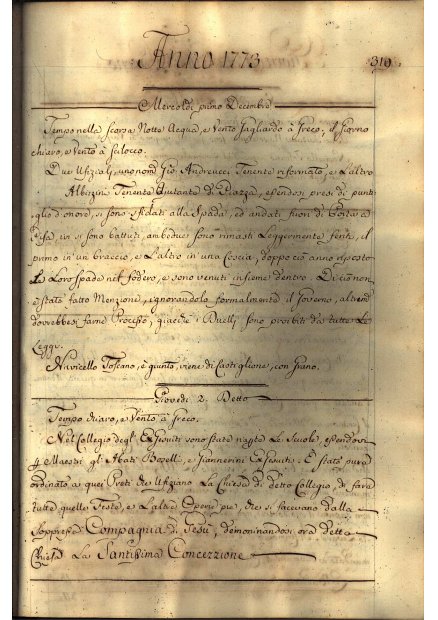 Anno 1773
310
Mercoldì primo Decembre
Tempo nella scorsa Notte Acqua, e Vento gagliardo à Greco; il Giorno
chiaro, e Vento à Scilocco.
Due Ufiziali, uno nom.° Gio Andreucci Tenente riformato, e L'altro
Albizini Tenente Ajutante di Piazza, essendosi presi di punt-
iglio d'onore, si sono sfidati alla Spada, ed andati fuori di Porta a
Pisa, ivi si sono battuti, ambedue sono rimasti Leggermente feriti, il
primo in un braccio, e L'altro in una Coscia, doppo ciò anno riposto
Le Loro spade nel fodero, e sono venuti insieme dentro. Di ciò non
è stato fatto Menzione, ignorandolo formalmente il Governo, altrim.
dovrebbesi farne Processo, giacche i Duelli sono proibiti dà tutte Le
Leggi.
Navicello Toscano, è giunto, viene di Castiglione, con Grano.
Giovedì 2. Detto
Tempo chiaro, e Vento à Greco.
Nel Collegio degl'ExGesuiti sono state riaperte Le Scuole, essendovi
p Maestri gli Abati Bozelli, e Giannerini ExGesuiti. È stato pure
ordinato a quei Preti che Ufiziano La Chiesa di detto Collegio, di fare
tutte quelle Feste, e L'altre Operie pie, che si facevano dalla
soppressa Compagnia di Gesù, denominandosi ora detta
Chiesa La Santissima Concezzione